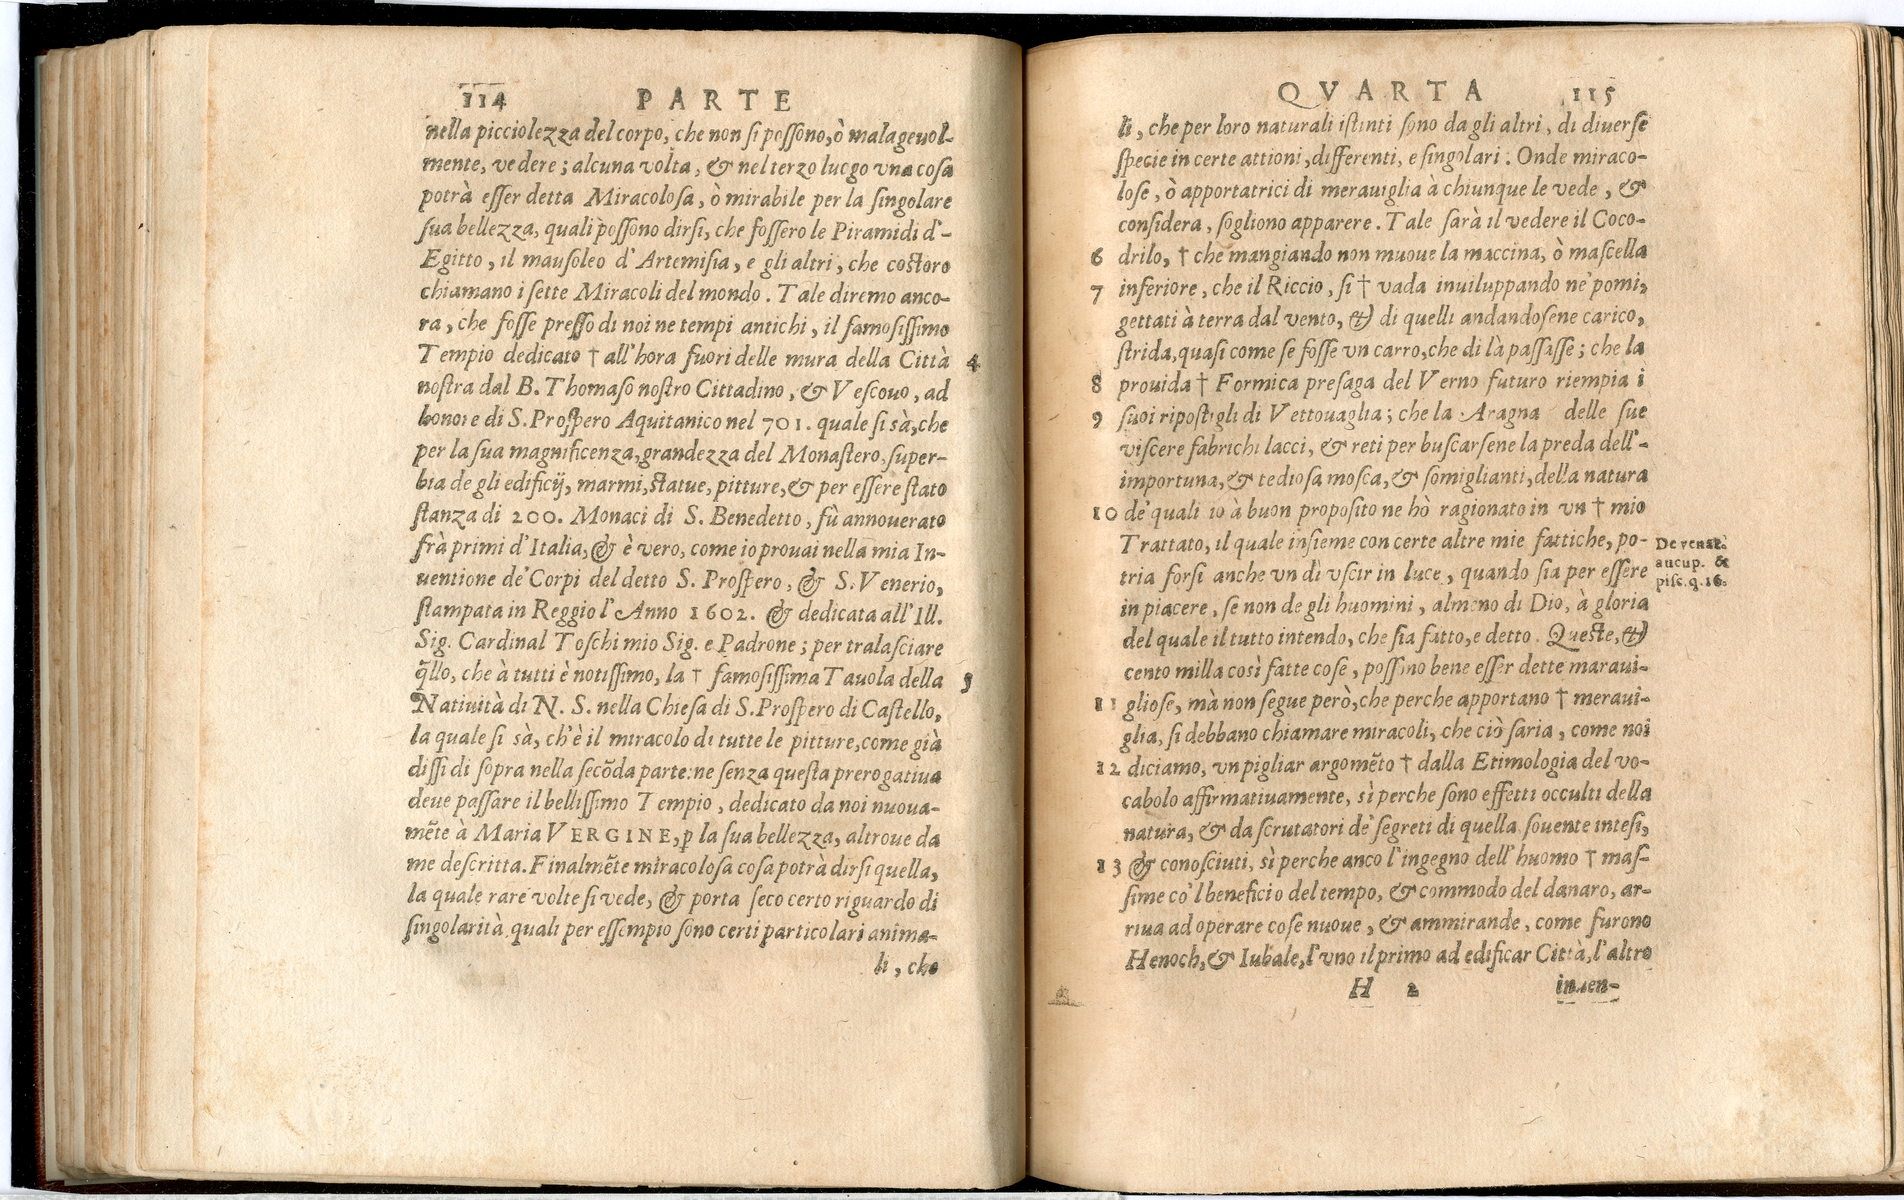 114 PARTE
nella picciolezza del corpo, che non si possono, ò malageuol-
mente, vedere; alcuna volta, & nel terzo luogo vna cosa
potrà esser detta Miracolosa, ò mirabile per la singolare
sua bellezza, quali possono dirsi, che fossero le Piramidi d'-
Egitto, il mausoleo d'Artemisia, e gli altri, che costoro
chiamano i sette Miracoli del mondo. Tale diremo anco-
ra, che fosse presso di noi ne tempi antichi, il famosissimo
Tempio dedicato † all'hora fuori delle mura della Città 4
nostra dal B. Thomaso nostro Cittadino, & Vescouo, ad
honore di S. Prospero Aquitanico nel 701. quale si sà, che
per la sua magnificenza, grandezza del Monastero, super-
bia de gli edificij, marmi, statue, pitture, & per essere stato
stanza di 200. Monaci di S. Benedetto, fù annouerato
frà primi d'Italia, & è vero, come io prouai nella mia In-
uentione de' Corpi del detto S. Prospero, & S. Venerio,
stampata in Reggio l'Anno 1602. & dedicata all'Ill.
Sig. Cardinal Toschi mio Sig. e Padrone; per tralasciare
q̃llo, che à tutti è notissimo, la † famosissima Tauola della 5
Natiuità di N. S. nella Chiesa di S. Prospero di Castello,
la quale si sà, ch'è il miracolo di tutte le pitture, come già
dissi di sopra nella secõda parte: ne senza questa prerogatiua
deue passare il bellissimo Tempio, dedicato da noi nuoua-
mẽte à Maria VERGINE, p la sua bellezza, altroue da
me descritta. Finalmẽte miracolosa cosa potrà dirsi quella,
la quale rare volte si vede, & porta seco certo riguardo di
singolarità quali per essempio sono certi particolari anima-
li, che
QVARTA 115
li, che per loro naturali istinti sono da gli altri, di diuerse
specie in certe attioni, differenti, e singolari: Onde miraco-
lose, ò apportatrici di merauiglia à chiunque le vede, &
considera, sogliono apparere. Tale sarà il vedere il Coco-
6 drilo, † che mangiando non muoue la maccina, ò mascella
7 inferiore, che il Riccio, si † vada inuiluppando ne' pomi,
gettati à terra dal vento, & di quelli andandosene carico,
strida, quasi come se fosse vn carro, che di là passasse; che la
8 prouida † Formica presaga del Verno futuro riempia i
9 suoi ripostigli di Vettouaglia; che la Aragna delle sue
viscere fabrichi lacci, & reti per buscarsene la preda dell'-
importuna, & tediosa mosca, & somiglianti, della natura
10 de' quali io à buon proposito ne hò ragionato in vn † mio
Trattato, il quale insieme con certe altre mie fattiche, po-
tria forsi anche vn dì vscir in luce, quando sia per essere
in piacere, se non de gli huomini, almeno di Dio, à gloria
del quale il tutto intendo, che sia fatto, e detto. Queste, &
cento milla così fatte cose, possino bene esser dette maraui-
11 gliose, mà non segue però, che perche apportano † meraui-
glia, si debbano chiamare miracoli, che ciò saria, come noi
12 diciamo, vn pigliar argomẽto † dalla Etimologia del vo-
cabolo affirmatiuamente, sì perche sono effetti occulti della
natura, & da scrutatori de' segreti di quella souente intesi,
13 & conosciuti, sì perche anco l'ingegno dell'huomo † mas-
sime co'l beneficio del tempo, & commodo del danaro, ar-
riua ad operare cose nuoue, & ammirande, come furono
Henoch, & Iubale, l'vno il primo ad edificar Città, l'altro
H 2 inuen-
De venat.
aucup. &
pisc. q. 16.